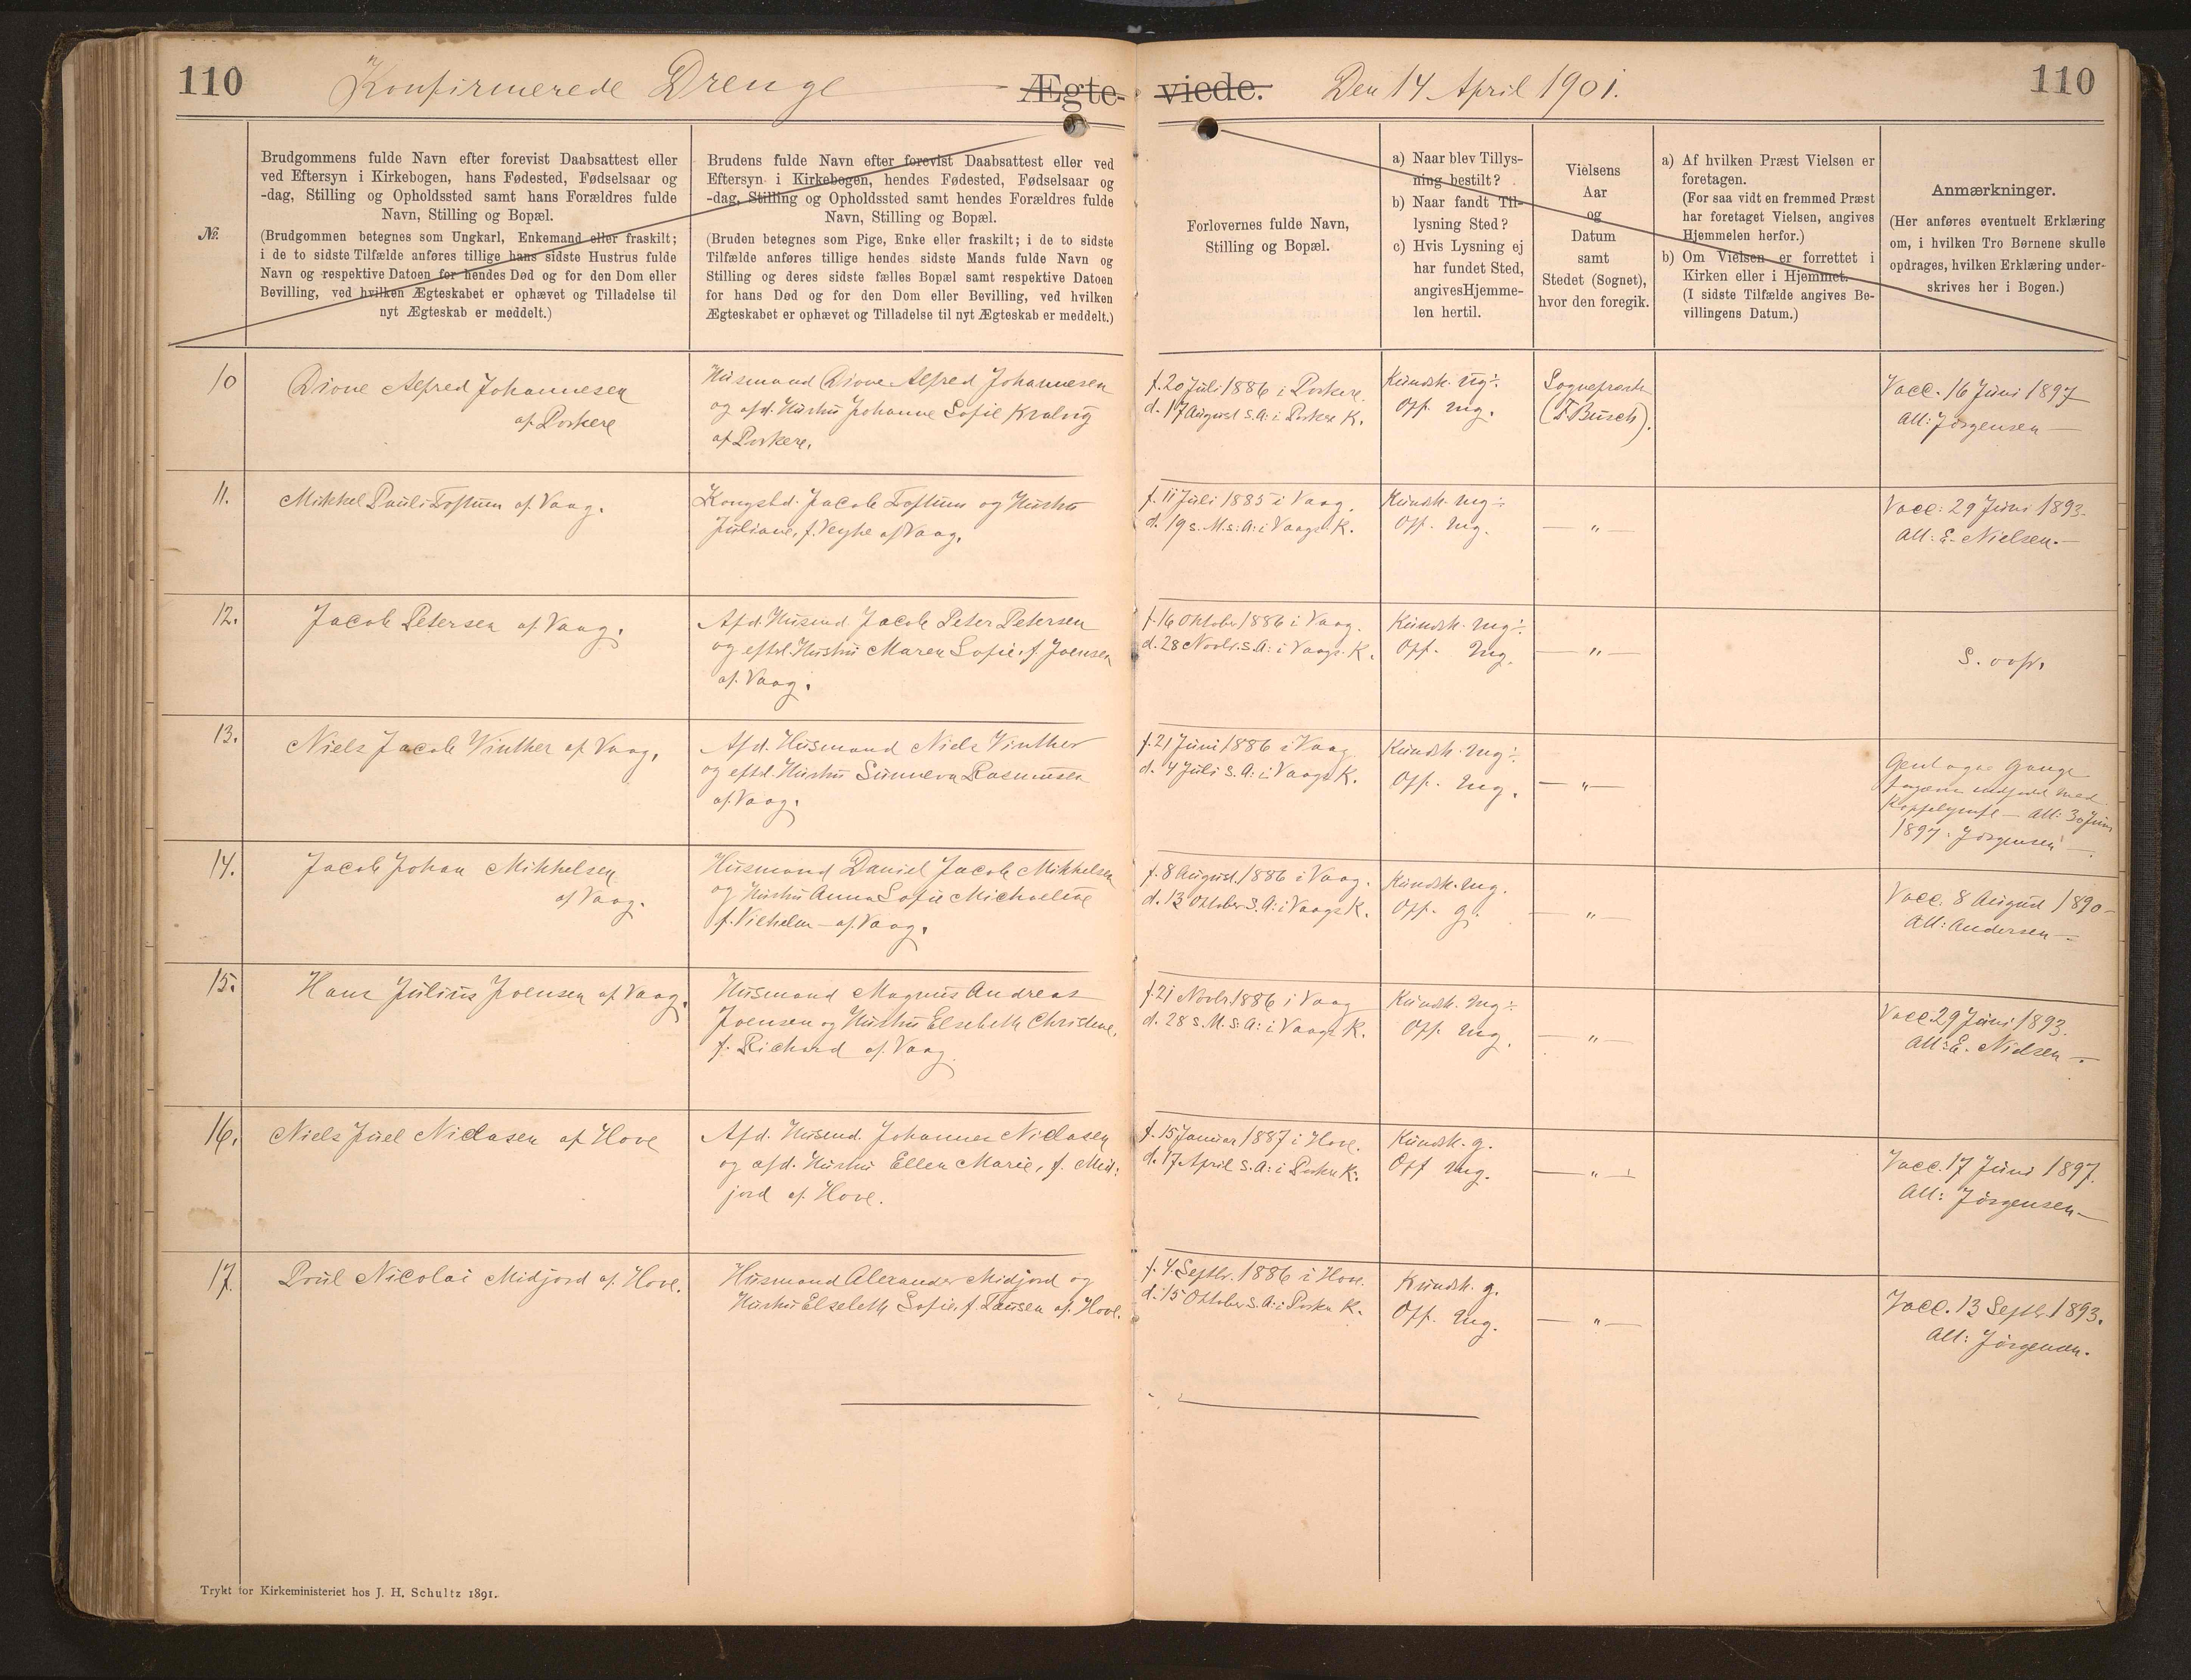 110
Konfirmerede Drenge
Ægte-
viede.
Den 14 April 1901.
110
№.
Brudgommens fulde Navn efter forevist Daabsattest eller
ved Eftersyn i Kirkebogen, hans Fødested, Fødselsaar og
-dag, Stilling og Opholdssted samt hans Forældres fulde
Navn, Stilling og Bopæl.
(Brudgommen betegnes som Ungkarl, Enkemand eller fraskilt;
i de to sidste Tilfælde anføres tillige hans sidste Hustrus fulde
Navn og respektive Datoen for hendes Død og for den Dom eller
Bevilling, ved hvilken Ægteskabet er ophævet og Tilladelse til
nyt Ægteskab er meddelt.)
Brudens fulde Navn efter forevist Daabsattest eller ved
Eftersyn i Kirkebogen, hendes Fødested, Fødselsaar og
-dag, Stilling og Opholdssted samt hendes Forældres fulde
Navn, Stilling og Bopæl.
(Bruden betegnes som Pige, Enke eller fraskilt; i de to sidste
Tilfælde anføres tillige hendes sidste Mands fulde Navn og
Stilling og deres sidste fælles Bopæl samt respektive Datoen
for hans Død og for den Dom eller Bevilling, ved hvilken
Ægteskabet er ophævet og Tilladelse til nyt Ægteskab er meddelt.)
Forlovernes fulde Navn,
Stilling og Bopæl.
a) Naar blev Tillys-
ning bestilt?
b) Naar fandt Til-
lysning Sted?
c) Hvis Lysning ej
har fundet Sted,
angives Hjemme-
len hertil.
Vielsens
Aar
og
Datum
samt
Stedet (Sognet),
hvor den foregik.
a) Af hvilken Præst Vielsen er
foretagen.
(For saa vidt en fremmed Præst
har foretaget Vielsen, angives
Hjemmelen herfor.)
b) Om Vielsen er forrettet i
Kirken eller i Hjemmet.
(I sidste Tilfælde angives Be-
villingens Datum.)
Anmærkninger.
(Her anføres eventuelt Erklæring
om, i hvilken Tro Børnene skulle
opdrages, hvilken Erklæring under-
skrives her i Bogen.)
10
Dione Alfred Johannesen
af Porkere
Husmand Dione Alfred Johannesen
og afd. Hustru Johanne Sofie
af Porkere.
f. 20 Juli 1886 i Porkere.
d. 17 August s. A. i Porkere K.
Kundsk. ug÷.
Opf. mg.
Sognepræst
(F. Busch).
Vacc. 16 Juni 1897
Att: Jørgensen —
11.
Mikkel Pauli Toftum af Vaag.
Kongsbd. Jacob Toftum og Hustru
Juliane, f. Veyhe af Vaag.
f. 11 Juli 1885 i Vaag.
d. 19 s. M. s. A. i Vaags K.
Kundsk. mg÷
Opf. mg.
— " —
Vacc: 29 Juni 1893.
Att: E. Nielsen. —
12.
Jacob Petersen af Vaag.
Afd. Husmd Jacob Peter Petersen
og eftl. Hustru Maren Sofie, f. Joensen
af Vaag.
f. 16 Oktober 1886 i Vaag.
d. 28 Novbr. s. A. i Vaags K.
Kundsk. mg÷.
Opf. mg.
— " —
S. ovfr.
13.
Niels Jacob Vinther af Vaag.
Afd. Husmand Niels Vinther
og eftl. Hustru Sunneva Rasmussen
af Vaag.
f. 21 Juni 1886 i Vaag
d. 4 Juli s. A. i Vaags K.
Kundsk. mg÷.
Opf. mg.
— " —
Gentagne Gange
med
Att: 30 Juni
1897. Jørgensen —.
14.
Jacob Johan Mikkelsen
af Vaag.
Husmand Daniel Jacob Mikkelsen
og Hustru Anna Sofie Michaeline
f. Vilhelm — af Vaag.
f. 8 August 1886 i Vaag.
d. 13 Oktober s. A. i Vaags K.
Kundsk. mg.
Opf. g.
— " —
Vacc. 8 August 1890 —
Att: Andersen —.
15.
Hans Julius Joensen af Vaag.
Husmand Magnus Andreas
Joensen og Hustru Elsebeth Christine,
f. Richard af Vaag.
f. 21 Novbr. 1886 i Vaag
d. 28 s. M. s. A. i Vaags K.
Kundsk. mg÷
Opf. mg.
— " —
Vacc. 29 Juni 1893.
Att: E. Nielsen —.
16.
Niels Juel Niclasen af Hove
Afd. Husmd. Johannes Niclasen
og afd. Hustru Ellen Marie, f. Mid:
jord af Hove.
f. 15 Januar 1887 i Hove.
d. 17 April s. A. i Porkere K.
Kundsk. g.
Opf mg.
— " —
Vacc. 17 Juni 1897.
Att: Jørgensen —
17.
Poul Nicolai Midjord af Hove.
Husmand Alexander Midjord og
Hustru Elsebeth Sofie, f. Tausen af Hove.
f. 4. Septbr. 1886 i Hove.
d. 15 Oktober s. A. i Porkere K.
Kundsk. g.
Opf. mg.
— " —
Vacc. 13 Septbr. 1893.
Att: Jørgensen.
Trykt for Kirkeministeriet hos J. H. Schultz 1891.